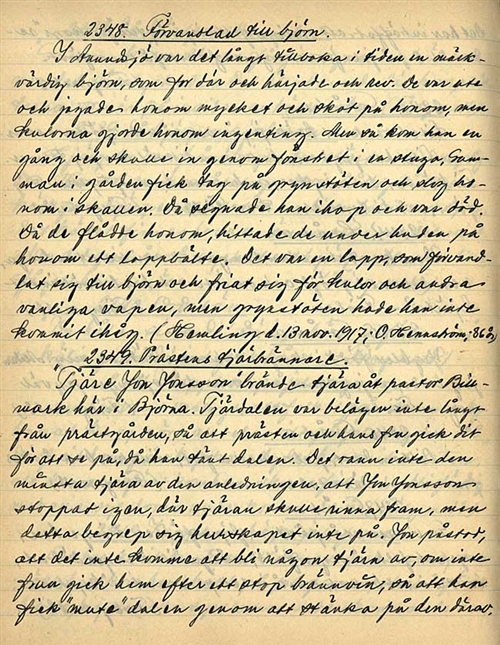 2348. Förvandlad till björn.
I Anundsjö var det långt tillbaka i tiden en märk-
värdig björn, som for där och härjade och rev. De var ute
och jagade honom mycket och sköt på honom, men
kulorna gjorde honom ingenting. Men så kom han en
gång och skulle in genom fönstret i en stuga. Gum-
man i gården fick tag på grynstöten och slog ho-
nom i skallen. Då segnade han ihop och var död.
Då de flådde honom, hittade de under huden på
honom ett lappbälte. Det var en lapp, som förvand-
lat sig till björn och friat sig för kulor och andra
vanliga vapen, men grynstöten hade han inte
kommit ihåg. (Hemling d. 13 nov. 1917, O. Hennström,
2349. Prästens tjärbännare.
"Tjäre Jon Jonsson" brände tjära åt pastor
mark här i Björna. Tjärdalen var belägen inte långt
från prästgården, så att prästen och hans fru gick dit
för att se på, då han tänt dalen. Det rann inte den
minsta tjära av den anledningen, att Jon Jonsson
stoppat igen, där tjäran skulle rinna fram, men
detta begrep sig herrskapet inte på. Jon påstod,
att det inte komme att bli någon tjära av, om inte
frun gick hem efter ett stop brännvin, så att han
fick "mute" dalen genom att stänka på den därav.